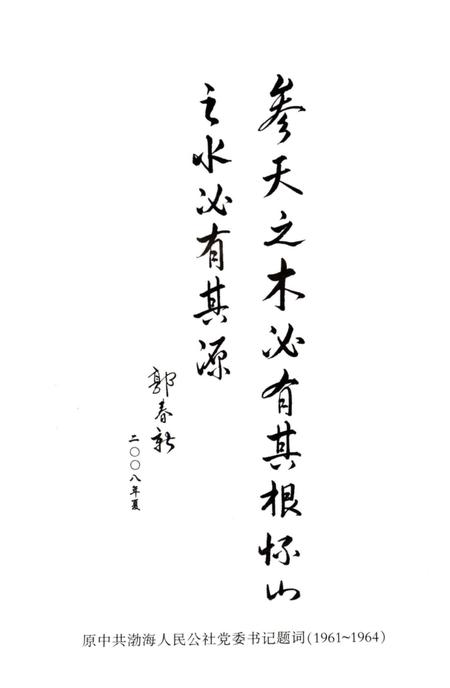 参天之木必有其根怀山
之水必有其源
郭春新
二〇〇八年夏
原中共渤海人民公社党委书记题词(1961~1964)